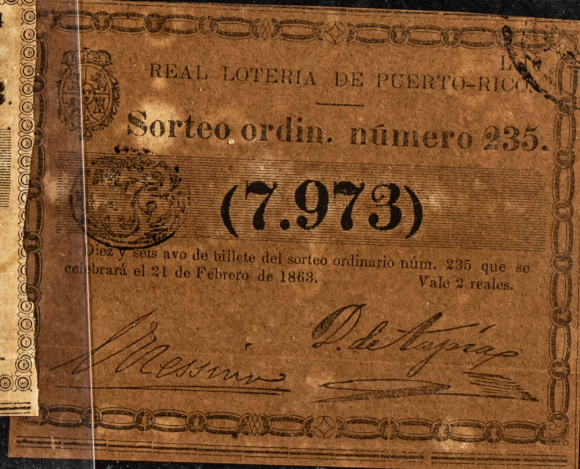 REAL LOTERIA DE PUERTO-RICO.
Sorteo ordin. número 235.
(7.973)
Diez y seis avo de billete del sorteo ordinario núm. 235 que se
celebrará el 21 de Febrero de 1863. Vale 2 reales.
Messina D. de Tapia